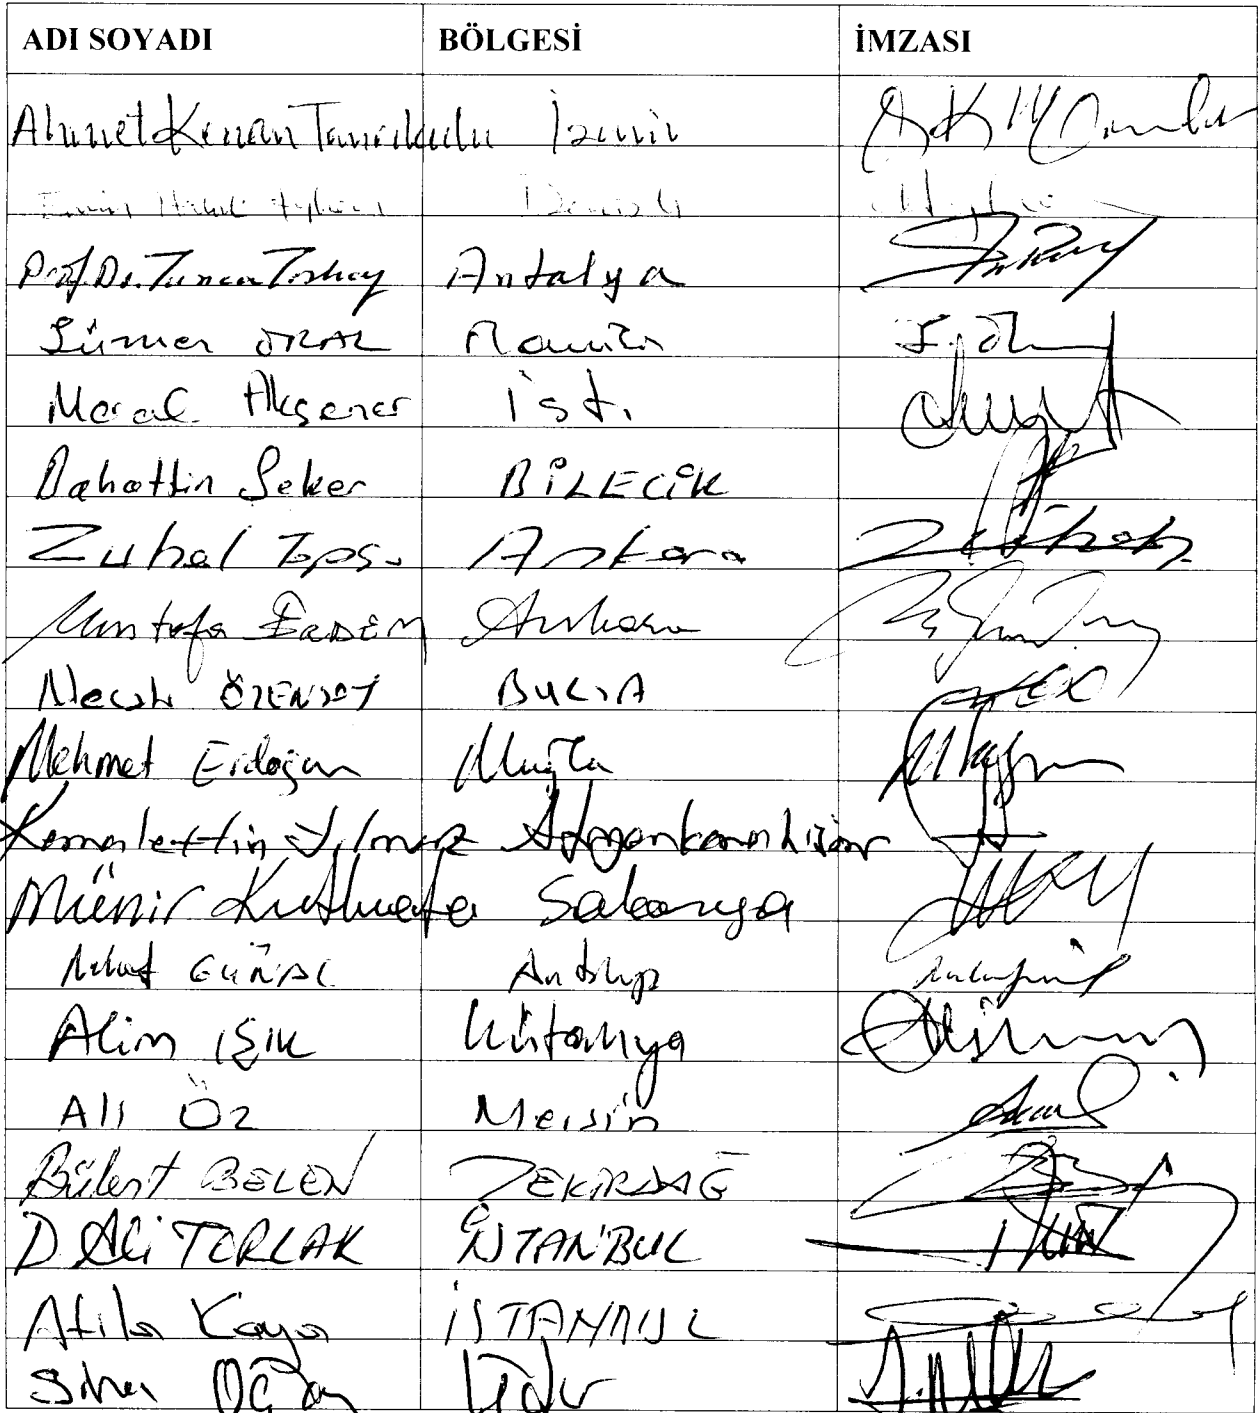 ADI SOYADI BÖLGESİ İMZASI
Ahmet Kenan Tanrıkulu İzmir
Emin Haluk Ayhan Denizli
Prof. Dr. Tunca Toskay Antalya
Sümer ORAL Manisa
Meral Akşener İst.
Bahattin Şeker BİLECİK
Zuhal Topçu Ankara
Mustafa ERDEM Ankara
Necati ÖZENSOY BURSA
Mehmet Erdoğan Muğla
Kemalettin Yılmaz Afyonkarahisar
Münir Kutluata Sakarya
GÜNAL
Alim IŞIK Kütahya
Ali Öz Mersin
Bülent BELEN TEKİRDAĞ
D. Ali TORLAK İSTANBUL
Atila Kaya İSTANBUL
Sinan Oğan Iğdır